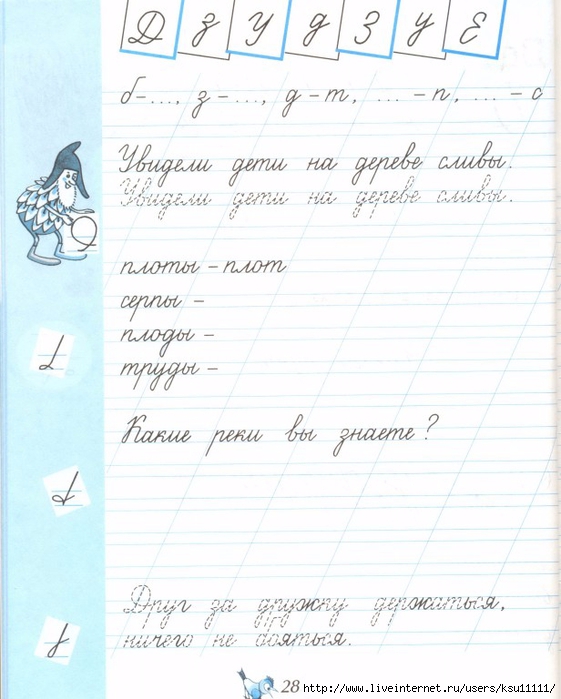 Д з У д З у Е
б-..., з-..., д-т, ...-п, ...-с
Увидели дети на дереве сливы.
Увидели дети на дереве сливы.
плоты - плот
серпы -
плоды -
труды -
Какие реки вы знаете?
Друг за дружку держаться,
ничего не бояться.
28 http://www.liveinternet.ru/users/ksu11111/